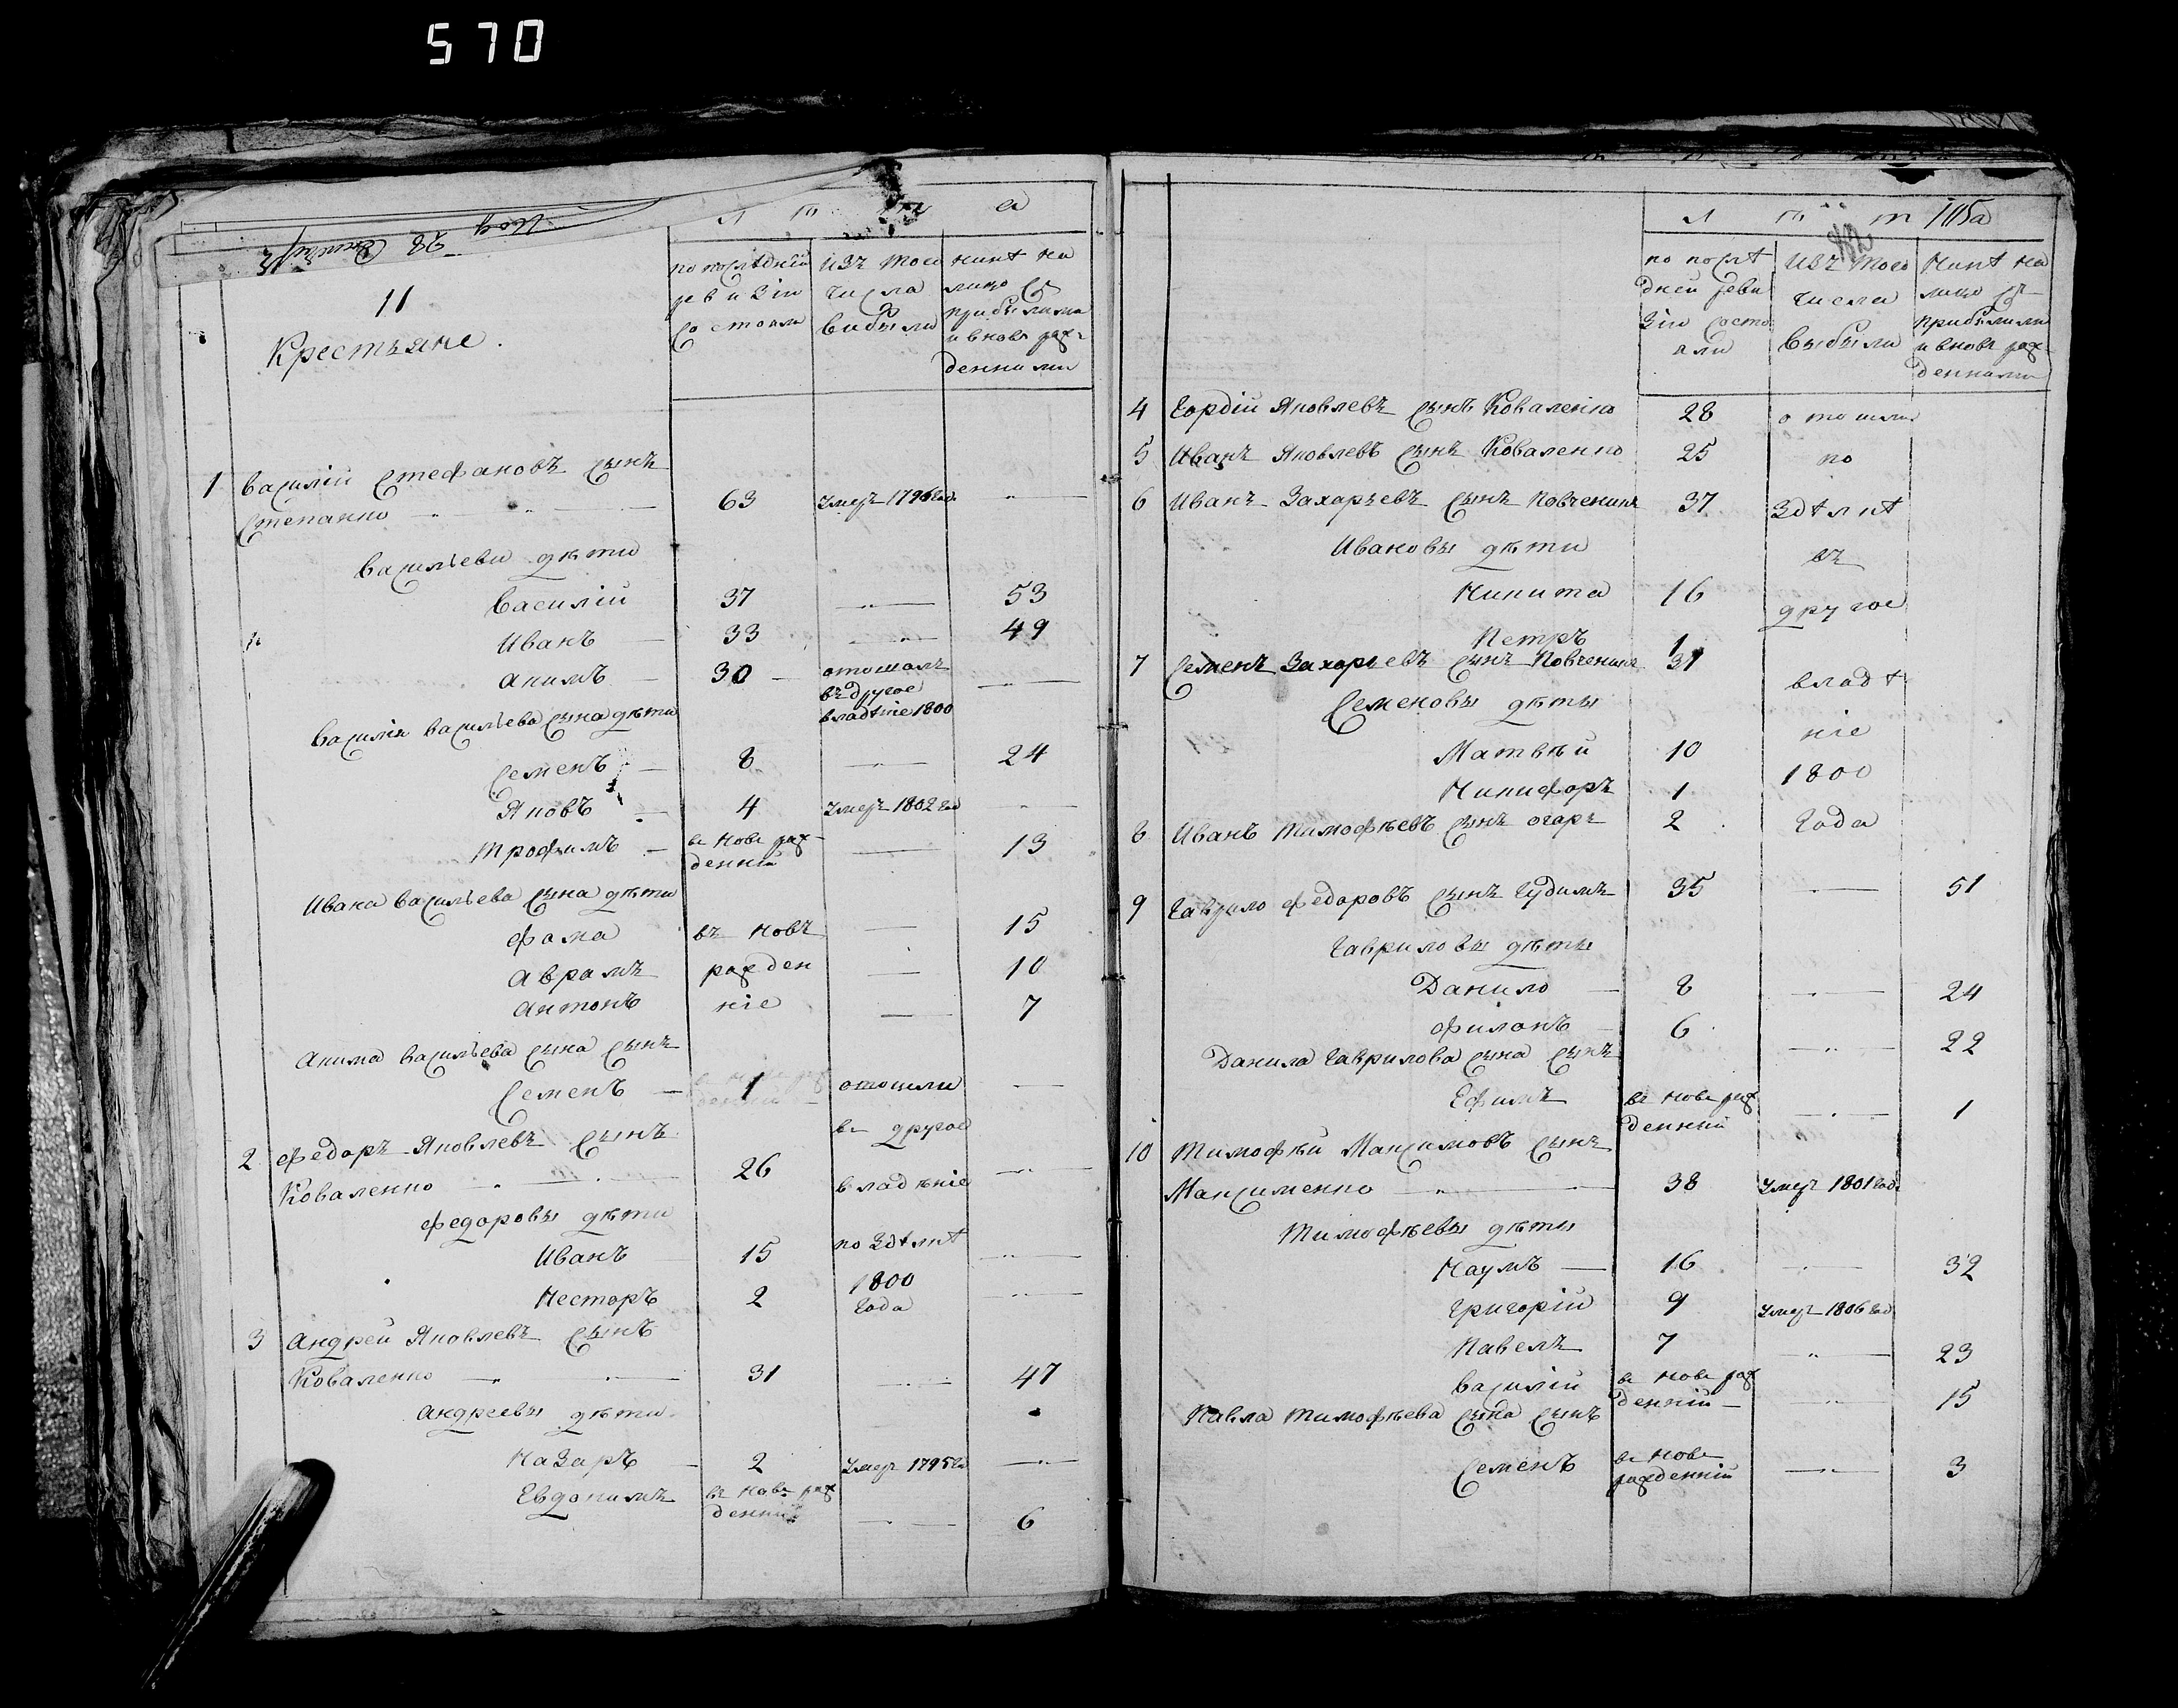 570
Л ѣ т а
по послѣдній ревизіи состояли
изъ того числа выбыли
нинѣ на лицо съ прибылими и вновь рожденними
11
Крестьяне.
1 Василій Стефановъ сынъ
Степанко 63 Умеръ 1796 год
Васильеви дѣти
Василій 37 53
Иванъ 33 49
Акимъ 30 отошолъ въ другое владѣніе 1800
Василія Васильева сына дѣти
Семенъ 8 24
Яковъ 4 Умеръ 1802 год
Трофимъ въ новь рожденній 13
Ивана Васильева сына дѣти
Фома въ новъ 15
Аврамъ рожден 10
Антонъ ніе 7
Акима Васильева сына сынъ
Семенъ 1 отошли
въ другое
2 Федоръ Яковлевъ сынъ
Коваленко 26 владѣніе
Федоровы дѣти
Иванъ 15 по здѣлкѣ
Несторъ 2 1800 года
3 Андрей Яковлевъ сынъ
Коваленко 31 47
Андреевы дѣти
Назаръ 2 Умеръ 1795 год
Евдокимъ въ новь рожденній 6
Л ѣ т а
105
по послѣдней ревизіи состояли
изъ того числа выбыли
нинѣ на лицо съ прибылими и вновь рожденними
4 Гордій Яковлевъ сынъ Коваленко 28 отошли
5 Иванъ Яковлевъ сынъ Коваленко 25 по
6 Иванъ Захарьевъ сынъ Повченикъ 37 здѣлкѣ
Ивановы дѣти въ
Никита 16 другое
Петръ 1
7 Семенъ Захарьевъ сынъ Повченикъ 31 владѣ
Семеновы дѣты
ніе
Матвѣй 10
Никифоръ 1 1800
8 Иванъ Тимофѣевъ сынъ Огарь 2 года
9 Гаврило Федоровъ сынъ Гудимъ 35 51
Гавриловы дѣты
Данило 8 24
Филонъ 6 22
Данила Гаврилова сына сынъ
Ефимъ въ новь рожденній 1
10 Тимофѣй Максимовъ сынъ
Максименко 38 Умеръ 1801 год
Тимофѣевы дѣты
Наумъ 16 32
Григорій 9 Умеръ 1806 год
Павелъ 7 23
Василій въ новь рожденній 15
Павла Тимофѣева сына сынъ
Семенъ въ новь рожденній 3